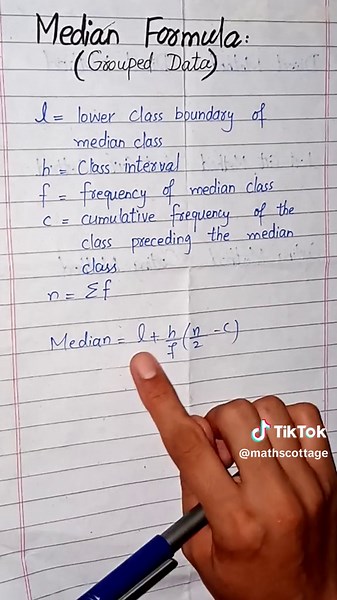 Median Formula:
(Grouped Data)
l = lower class boundary of
median class
h = Class interval
f = frequency of median class
c = cumulative frequency of the
class preceding the median
class
n = Σf
Median = l + h/f (n/2 - C)
TikTok
@mathscottage